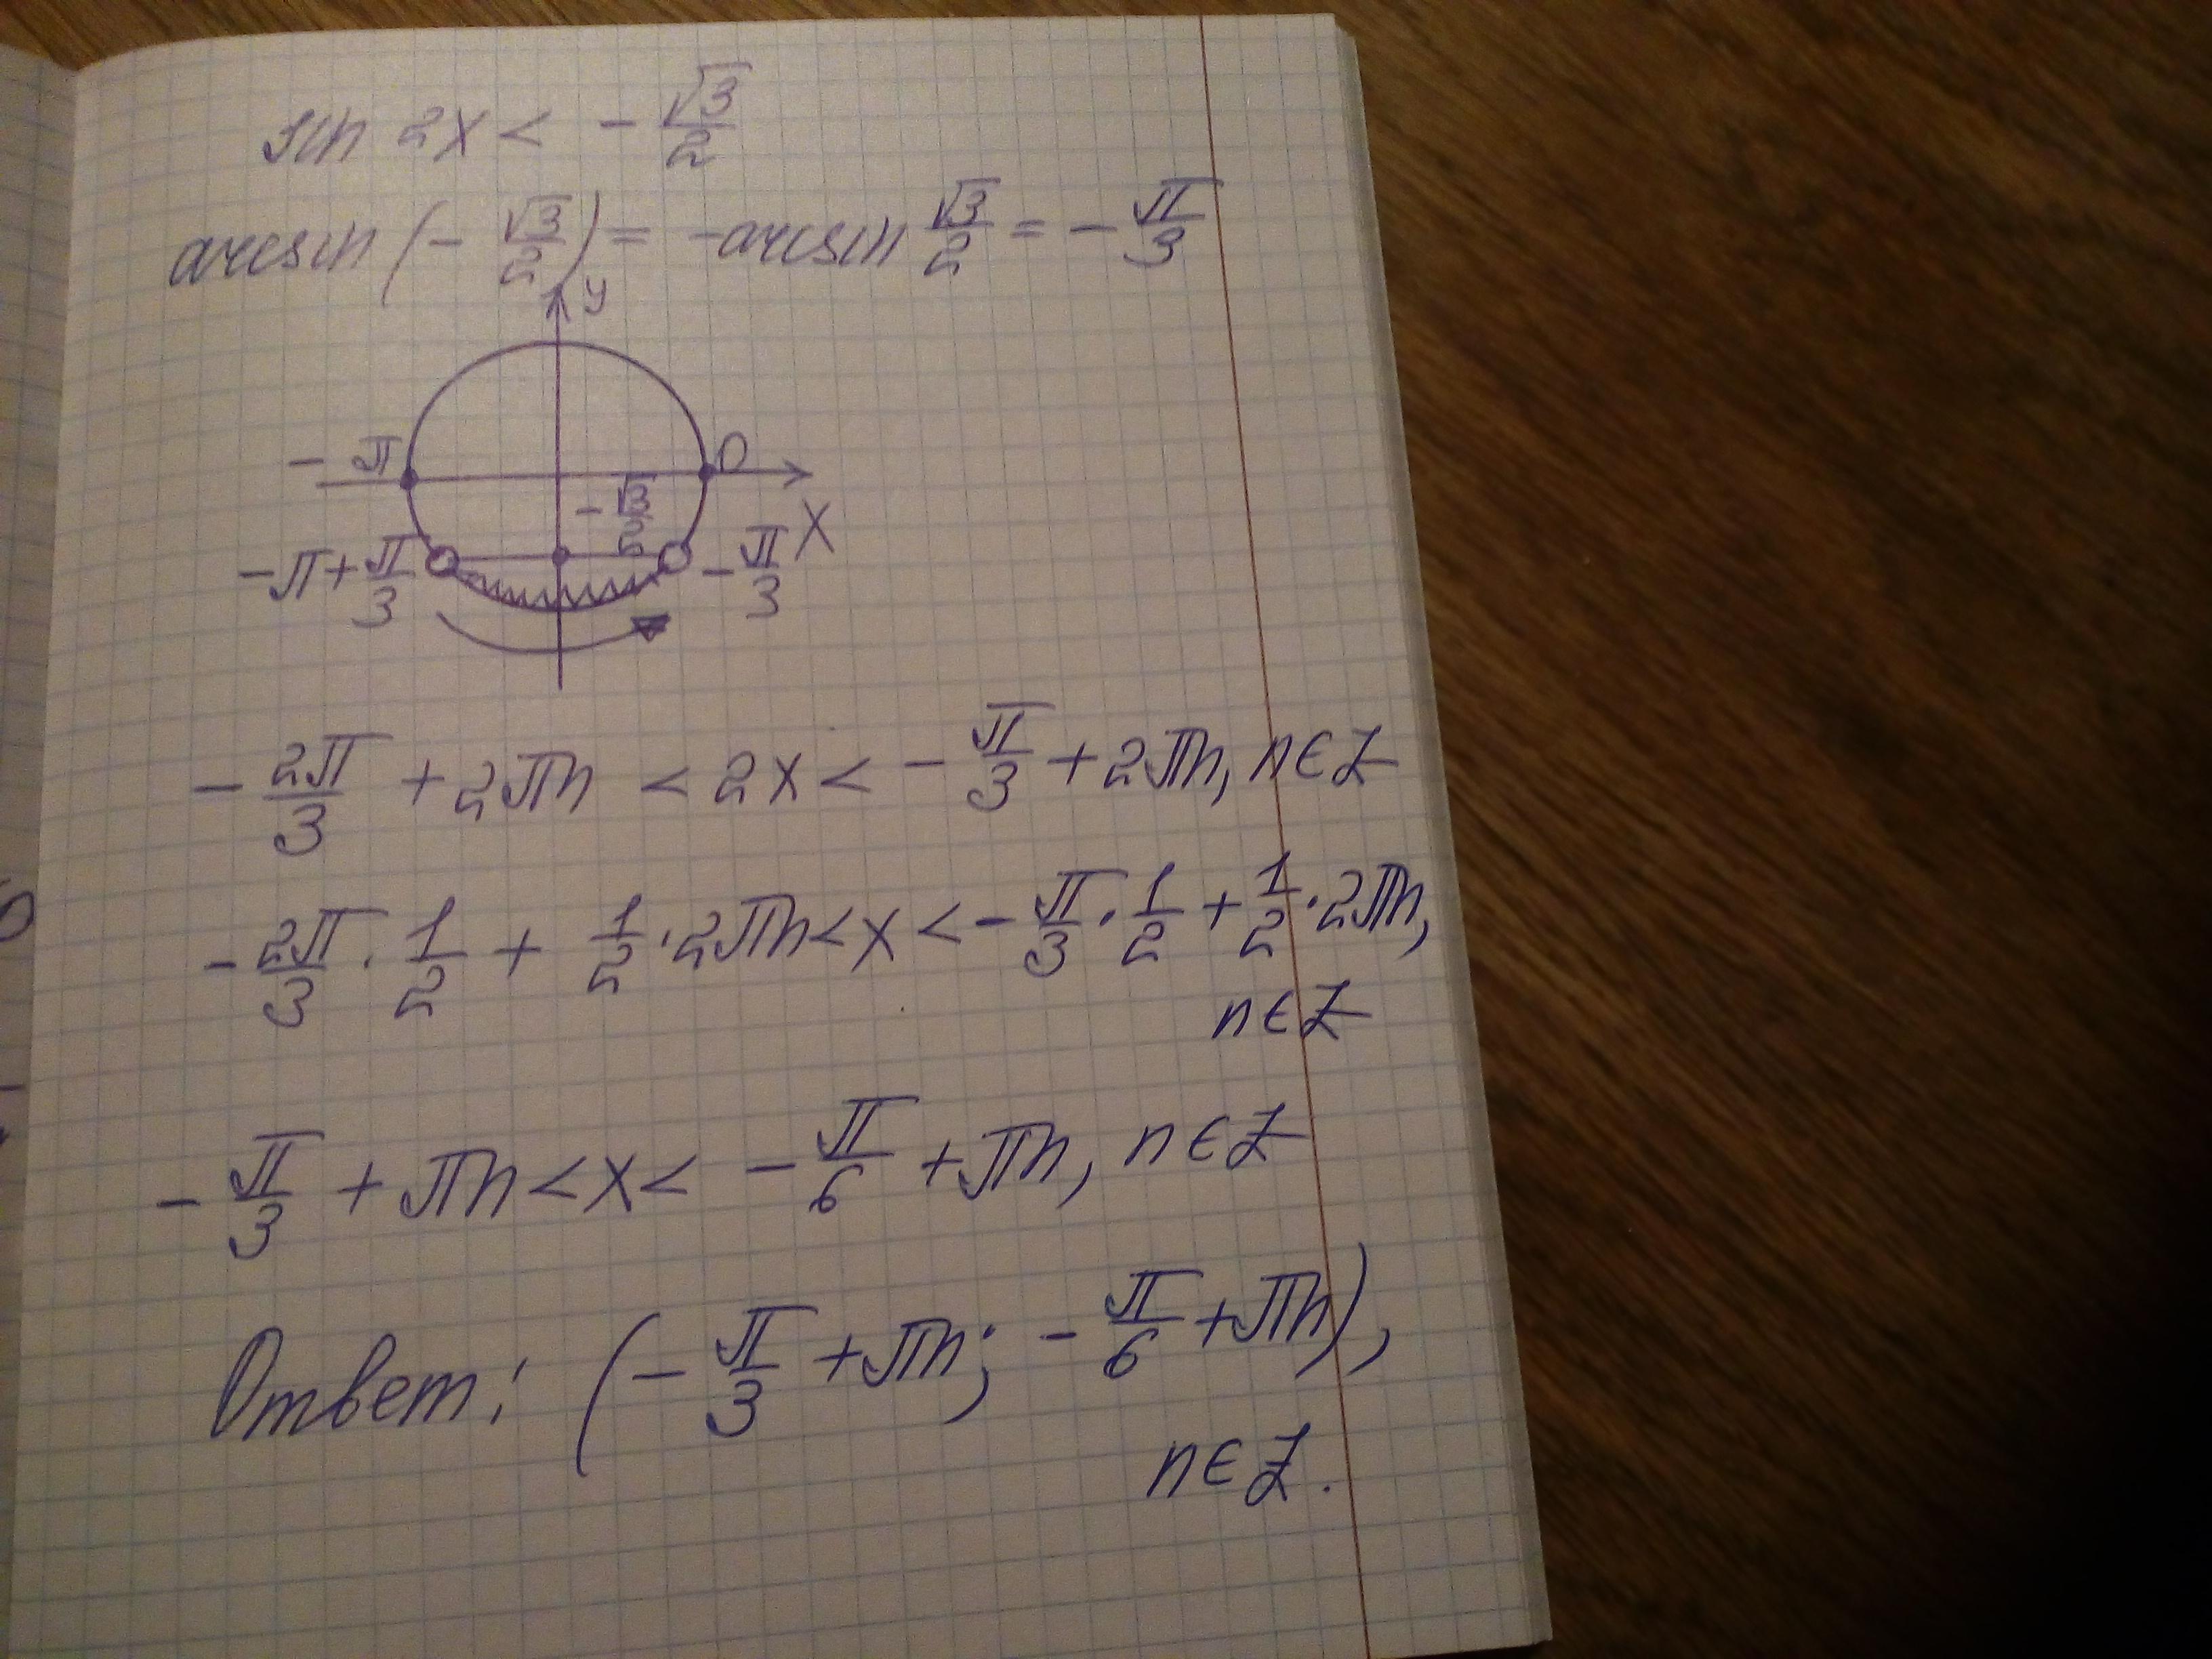 sin 2x < - √3/2
arcsin (- √3/2) = -arcsin √3/2 = - π/3
y
- π 0
- √3/2
X
-π + π/3 - π/3
- 2π/3 + 2πn < 2x < - π/3 + 2πn, n ∈ Z
- 2π/3 · 1/2 + 1/2 · 2πn < x < - π/3 · 1/2 + 1/2 · 2πn,
n ∈ Z
- π/3 + πn < x < - π/6 + πn, n ∈ Z
Ответ: (- π/3 + πn; - π/6 + πn),
n ∈ Z.